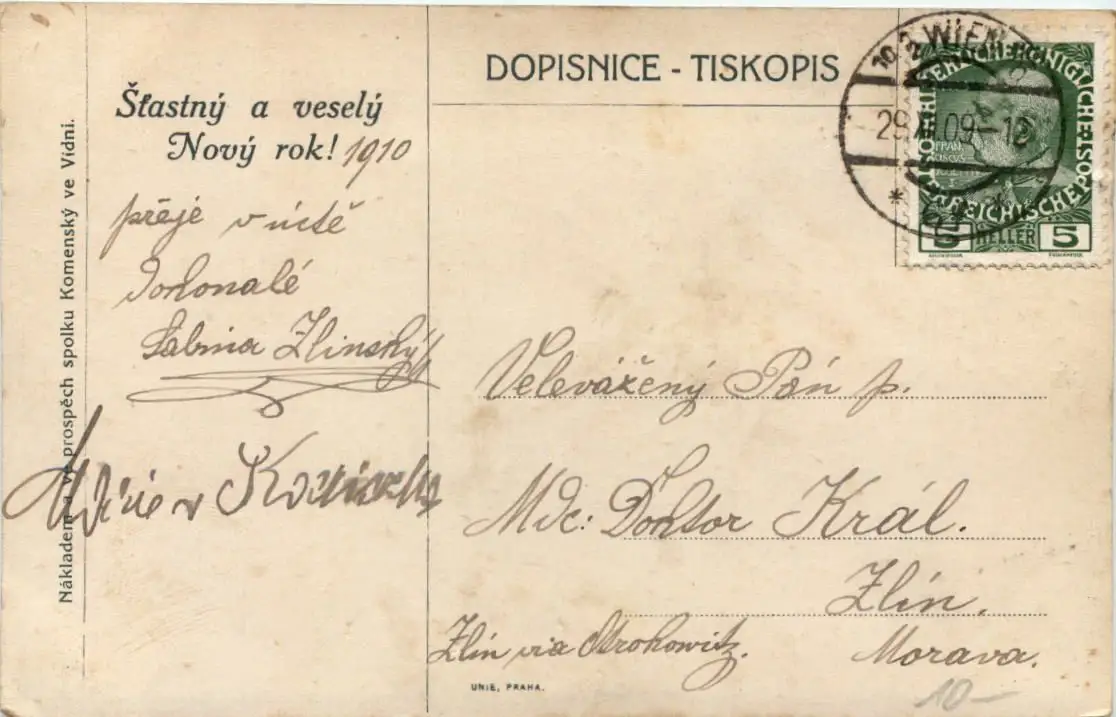 Nákladem a ve prospěch spolku Komenský ve Vídni.
Šťastný a veselý
Nový rok! 1910
přeje v úctě
Dokonalé
Sabina Zlinský
DOPISNICE - TISKOPIS
10/2 WIEN
29.XII.09-12
* 9d *
ÖSTERREICHISCHE POST
5 HELLER 5
Velevážený Pán p.
Mdc: Doktor Král.
Zlín.
Zlín via Otrokowitz.
Morava.
UNIE, PRAHA.
10-